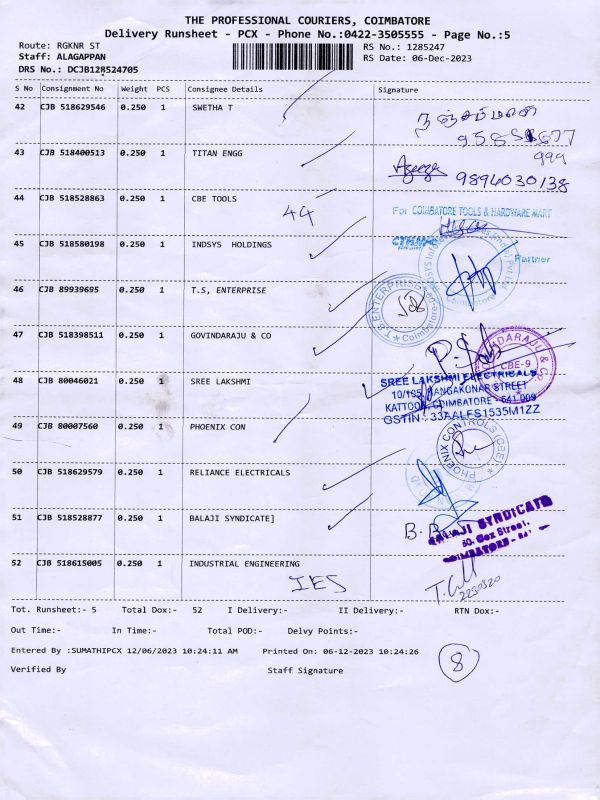 THE PROFESSIONAL COURIERS, COIMBATORE
Delivery Runsheet - PCX - Phone No.:0422-3505555 - Page No.:5
Route: RGKNR ST
RS No.: 1285247
Staff: ALAGAPPAN
RS Date: 06-Dec-2023
DRS No.: DCJB128524705
S No Consignment No Weight PCS Consignee Details Signature
42 CJB 518629546 0.250 1 SWETHA T
43 CJB 518400513 0.250 1 TITAN ENGG
999
9894030138
44 CJB 518528863 0.250 1 CBE TOOLS
44
For COIMBATORE TOOLS & HARDWARE MART
Partner
45 CJB 518580198 0.250 1 INDSYS HOLDINGS
46 CJB 89939695 0.250 1 T.S, ENTERPRISE
T.S ENTERPRISE
Coimbatore
47 CJB 518398511 0.250 1 GOVINDARAJU & CO
CBE-9
48 CJB 80046021 0.250 1 SREE LAKSHMI
SREE LAKSHMI ELECTRICALS
10/195, RANGAKONAR STREET
KATTOOR, COIMBATORE - 641 009
GSTIN : 33AALFS1535M1ZZ
49 CJB 80007560 0.250 1 PHOENIX CON
PHOENIX CONTROLS (CBE)
50 CJB 518629579 0.250 1 RELIANCE ELECTRICALS
51 CJB 518528877 0.250 1 BALAJI SYNDICATE]
BALAJI SYNDICATE
COIMBATORE
52 CJB 518615005 0.250 1 INDUSTRIAL ENGINEERING
IES
Tot. Runsheet:- 5 Total Dox:- 52 I Delivery:- II Delivery:- RTN Dox:-
Out Time:- In Time:- Total POD:- Delvy Points:-
Entered By :SUMATHIPCX 12/06/2023 10:24:11 AM Printed On: 06-12-2023 10:24:26
8
Verified By Staff Signature